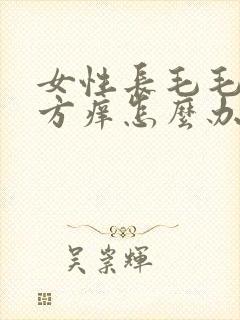 女性长毛毛
方痒怎麼办
吴崇輝